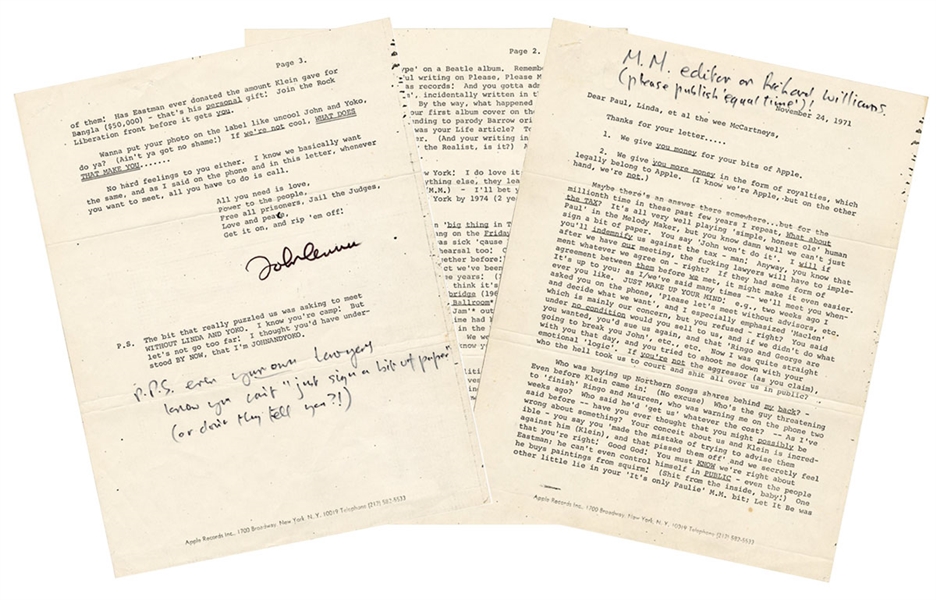 Page 3.
of them! Has Eastman ever donated the amount Klein gave for
Bangla ($50,000) - that's his personal gift! Join the Rock
Liberation front before it gets you.
Wanna put your photo on the label like uncool John and Yoko,
do ya? (Ain't ya got no shame!) If we're not cool, WHAT DOES
THAT MAKE YOU.......
No hard feelings to you either. I know we basically want
the same, and as I said on the phone and in this letter, whenever
you want to meet, all you have to do is call.
All you need is love,
Power to the people,
Free all prisoners, Jail the Judges,
Love and peace,
Get it on, and rip 'em off!
John Lennon
P.S. The bit that really puzzled us was asking to meet
WITHOUT LINDA AND YOKO. I know you're camp! But
let's not go too far! I thought you'd have under-
stood BY NOW, that I'm JOHNANDYOKO.
P.P.S. even your own lawyers
know you can't "just sign a bit of paper"
(or don't they tell you?!)
Apple Records Inc., 1700 Broadway, New York, N.Y. 10019 Telephone (212) 582-5533
Page 2.
ype' on a Beatle album. Rememb
ful writing on Please, Please M
as records! And you gotta ad
s', incidentally written in t
By the way, what happened
our first album cover on the
unding to parody Barrow ori
was your Life article? Te
er. (And your writing in
the Realist, is it?) A
w York! I do love it
ything else, they lea
M.M.) - I'll bet y
York by 1974 (2 ye
'big thing in T
ng on the Friday
was sick 'cause
hearsal too! C
ether before!
ct we've been
e years! (I
think it's
bridge (196
Ballroom'
Jam's' out
ime had b
in the
We wo
know y
M.M. editor or Richard Williams
(please publish equal time)!
November 24, 1971
Dear Paul, Linda, et al the wee McCartneys,
Thanks for your letter.....
1. We give you money for your bits of Apple.
2. We give you more money in the form of royalties, which
legally belong to Apple. (I know we're Apple, but on the other
hand, we're not.)
Maybe there's an answer there somewhere...but for the
millionth time in these past few years I repeat, What about
the TAX? It's all very well playing 'simple, honest ole' human
Paul' in the Melody Maker, but you know damn well we can't just
sign a bit of paper. You say 'John won't do it'. I will if
you'll indemnify us against the tax - man! Anyway, you know that
after we have our meeting, the fucking lawyers will have to imple-
ment whatever we agree on - right? If they had some form of
agreement between them before we met, it might make it even easier.
It's up to you; as I/we've said many times -- we'll meet you when-
ever you like. JUST MAKE UP YOUR MIND! e.g., two weeks ago I
asked you on the phone, 'Please let's meet without advisors, etc.
and decide what we want', and I especially emphasized 'Maclen'
which is mainly our concern, but you refused - right? You said
under no condition would you sell to us, and if we didn't do what
you wanted, you'd sue us again, and that 'Ringo and George are
going to break you John', etc., etc. Now I was quite straight
with you that day, and you tried to shoot me down with your
emotional 'logic'. If you're not the aggressor (as you claim),
who the hell took us to court and shit all over us in public?
Who was buying up Northern Songs shares behind my back? -
Even before Klein came in! (No excuse) Who's the guy threatening
to 'finish' Ringo and Maureen, who was warning me on the phone two
weeks ago? Who said he'd 'get us' whatever the cost? -- As I've
said before -- have you ever thought that you might possibly be
wrong about something? Your conceit about us and Klein is incred-
ible - you say you 'made the mistake of trying to advise them
against him (Klein), and that pissed them off' and we secretly feel
that you're right! Good God! You must KNOW we're right about
Eastman; he can't even control himself in PUBLIC - even the people
he buys paintings from squirm! (Shit from the inside, baby!) One
other little lie in your 'It's only Paulie' M.M. bit: Let It Be was
Apple Records Inc., 1700 Broadway, New York, N.Y. 10019 Telephone (212) 582-5533